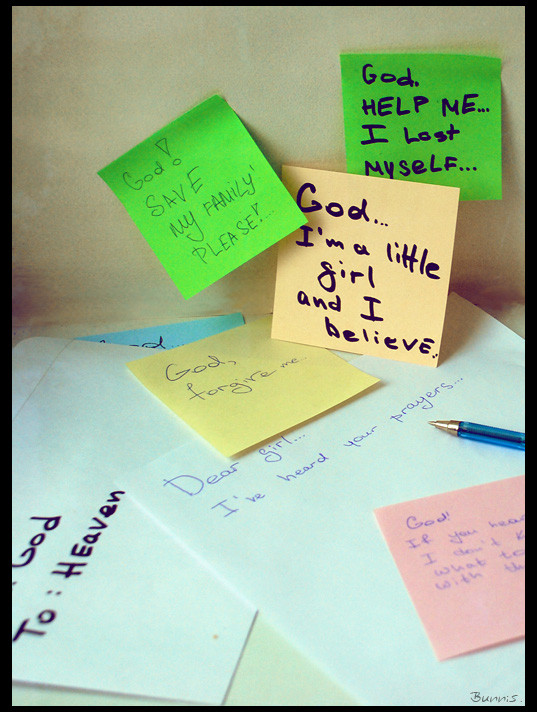 God.
HELP ME...
I Lost
MYSELF...
God!
SAVE
MY FAMILY
PLEASE!...
God...
I'm a little
girl
and I
believe..
God,
forgive me..
Dear girl...
I've heard your prayers...
God!
If you hear
I don't
what to
with
God
To: HEaven
Bunnis.